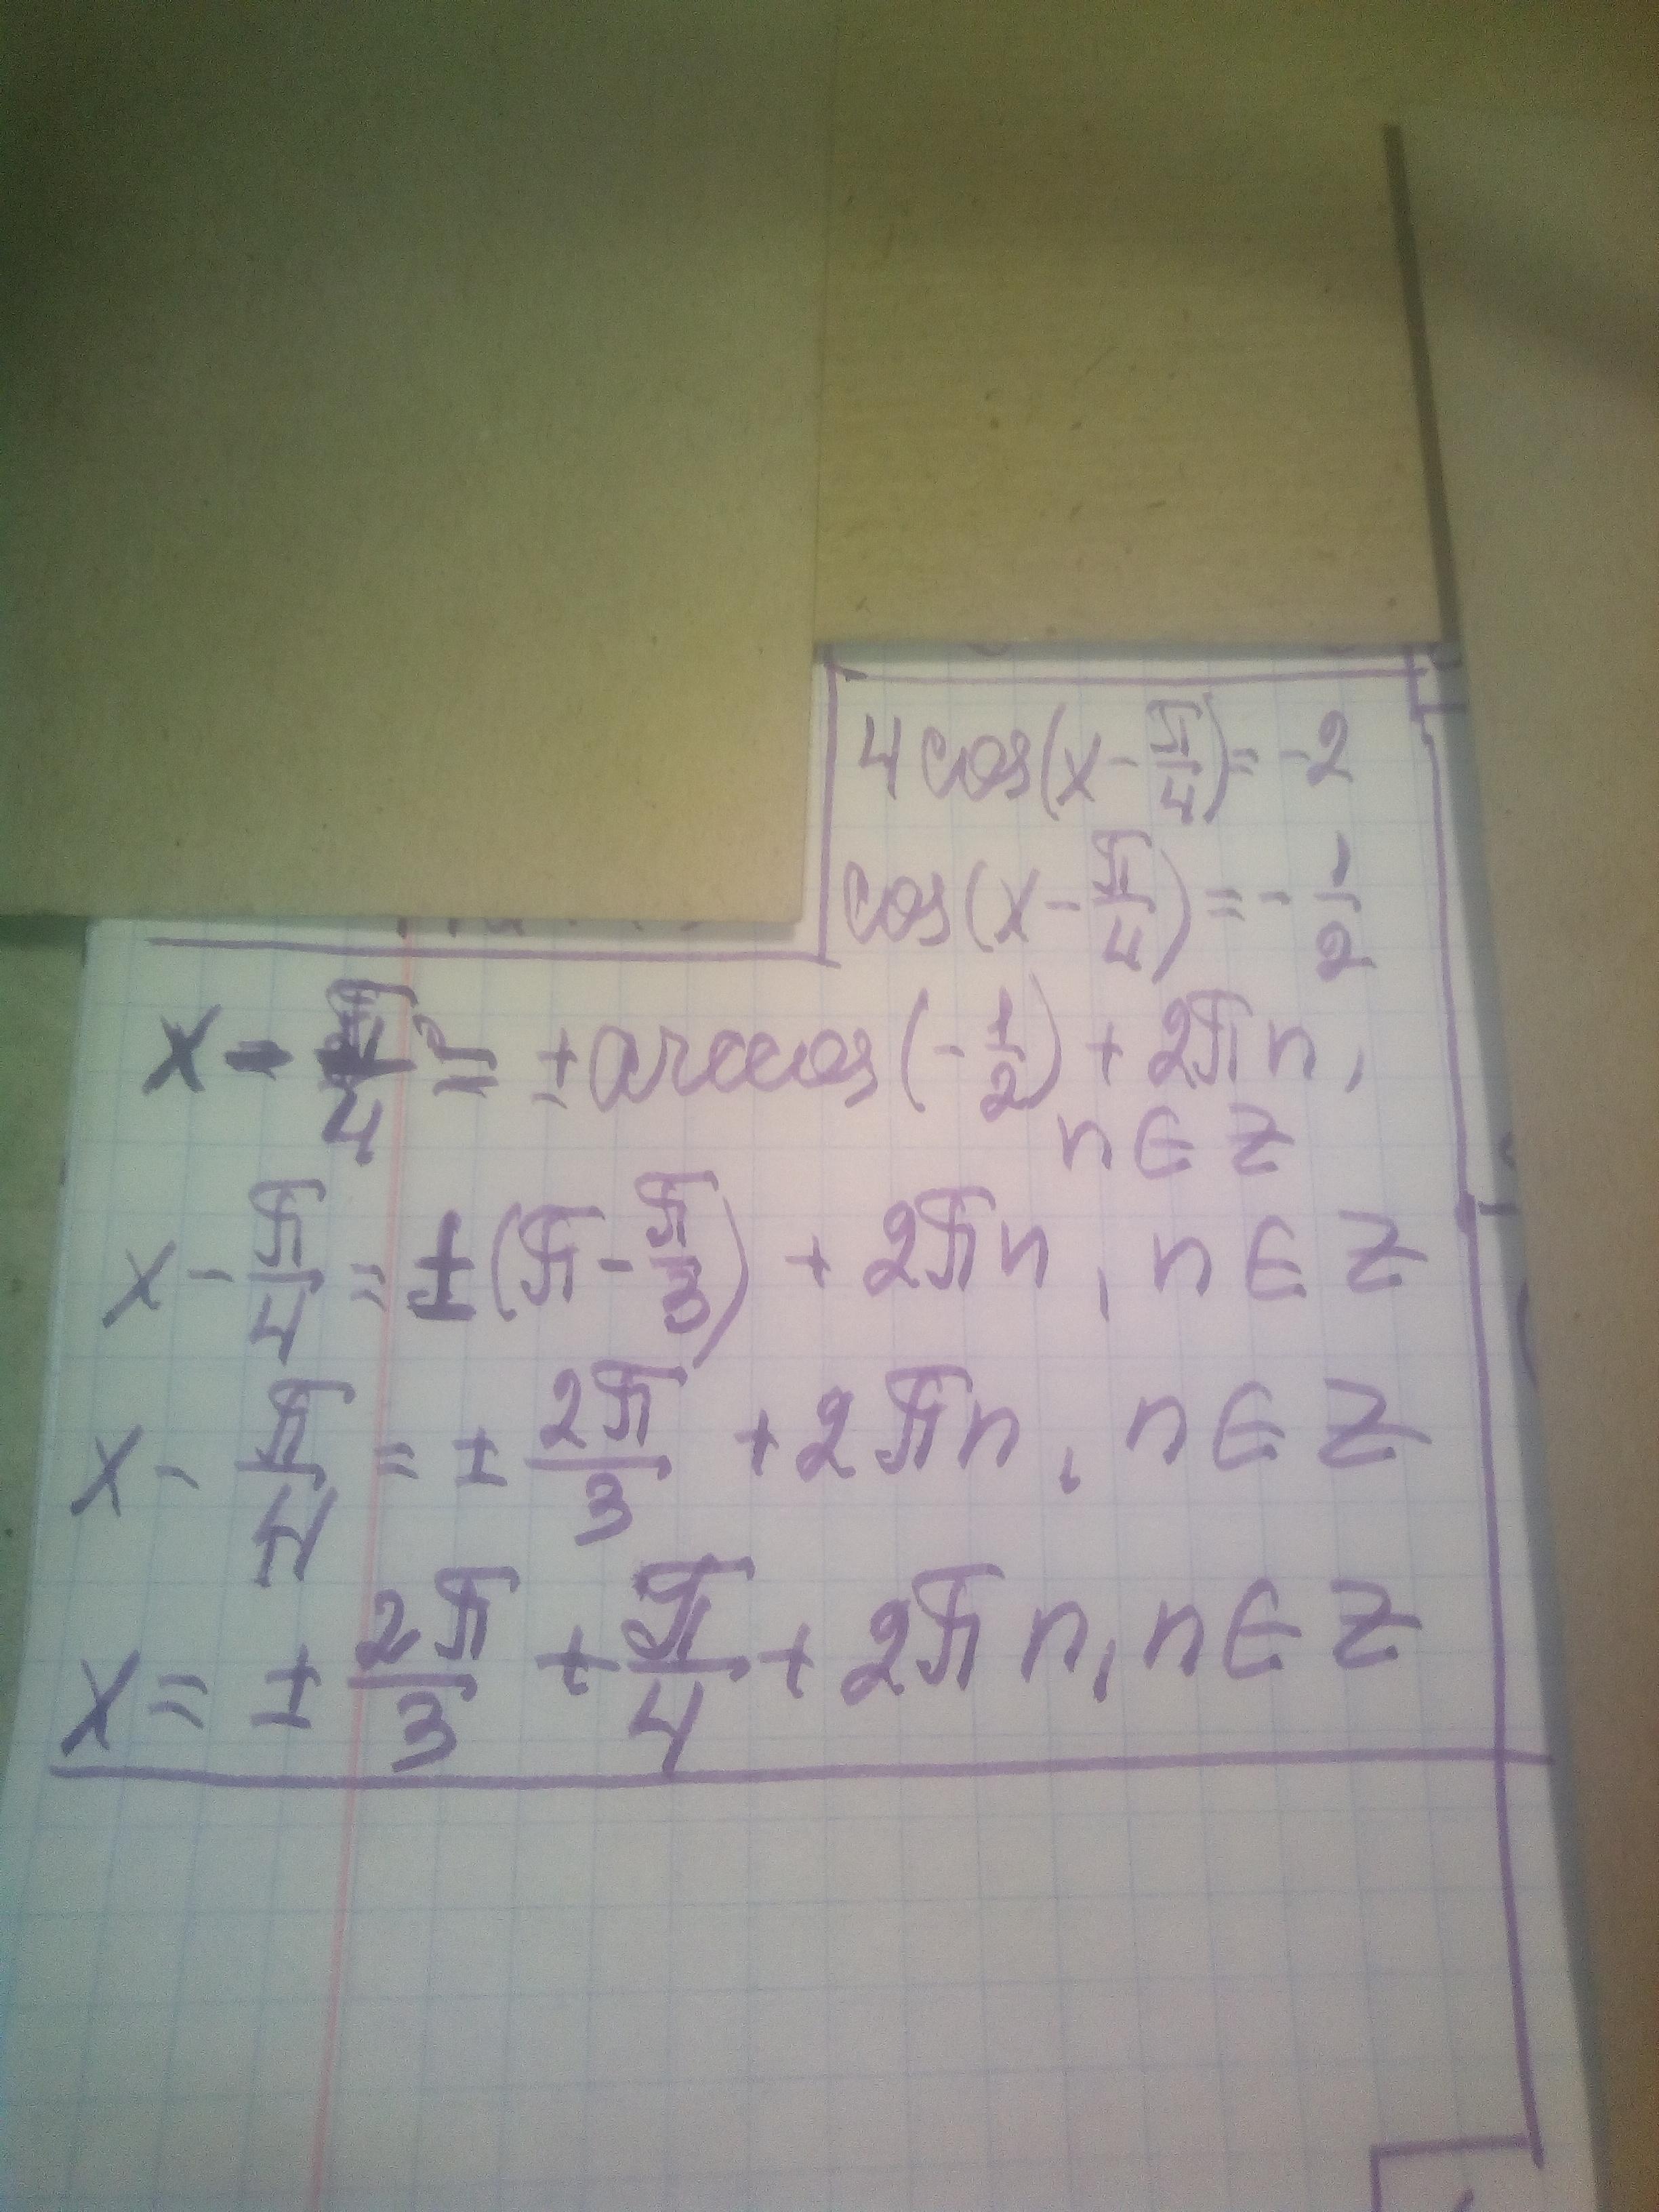 4cos(x - π/4) = -2
cos(x - π/4) = - 1/2
x - π/4 = ± arccos(- 1/2) + 2πn,
n ∈ Z
x - π/4 = ±(π - π/3) + 2πn, n ∈ Z
x - π/4 = ± 2π/3 + 2πn, n ∈ Z
x = ± 2π/3 + π/4 + 2πn, n ∈ Z